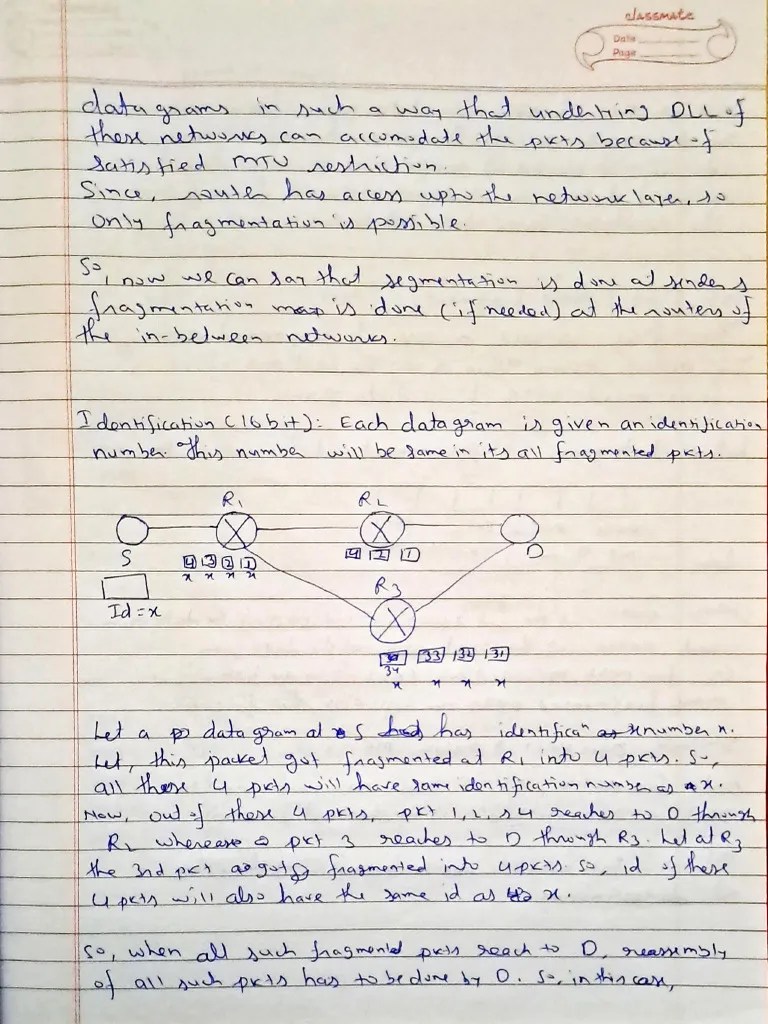 classmate
Date
Page
datagrams in such a way that underlying DLL of
these networks can accomodate the pkts because of
satisfied MTU restriction.
Since, router has access upto the network layer, so
only fragmentation is possible.
So, now we can say that segmentation is done at sender &
fragmentation is done (if needed) at the routers of
the in-between networks.
Identification (16 bit): Each datagram is given an identification
number. This number will be same in its all fragmented pkts.
R1 R2
S D
4 3 2 1 4 2 1
x x x x
R3
Id = x
33 32 31
34
x x x x
Let a datagram at S has identificaⁿ number x.
Let, this packet got fragmented at R1 into 4 pkts. So,
all these 4 pkts will have same identification number as x.
Now, out of these 4 pkts, pkt 1, 2, & 4 reaches to D through
R2 whereas pkt 3 reaches to D through R3. Let at R3
the 3rd pkt got fragmented into 4 pkts. So, id of these
4 pkts will also have the same id as x.
So, when all such fragmented pkts reach to D, reassembly
of all such pkts has to be done by D. So, in this case,